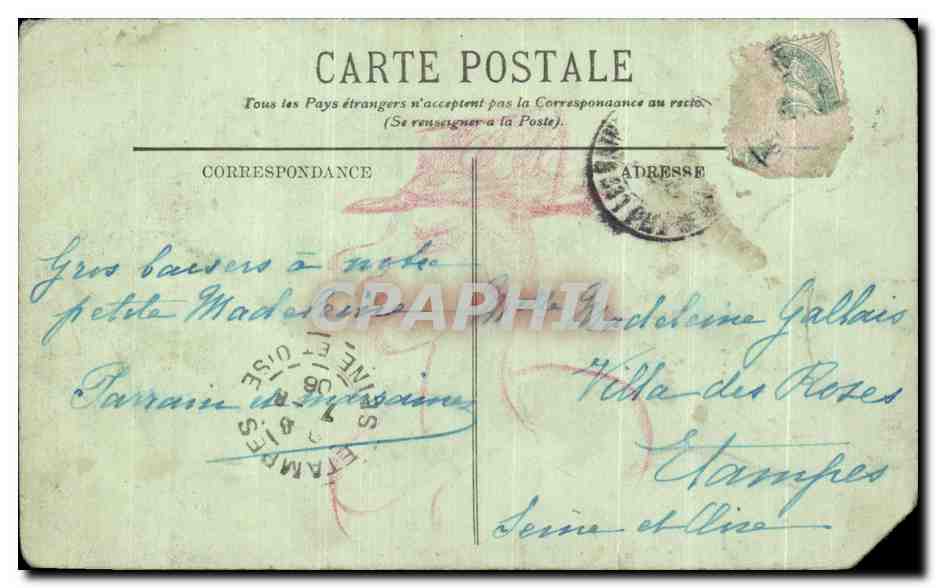 CARTE POSTALE
Tous les Pays étrangers n'acceptent pas la Correspondance au recto.
(Se renseigner a la Poste).
CORRESPONDANCE
ADRESSE
Gros baisers à notre
petite Madeleine
Parrain et marraine
Melle Madeleine Gallais
Villa des Roses
Etampes
Seine et Oise
ETAMPES
SEINE ET OISE
CPAPHIL